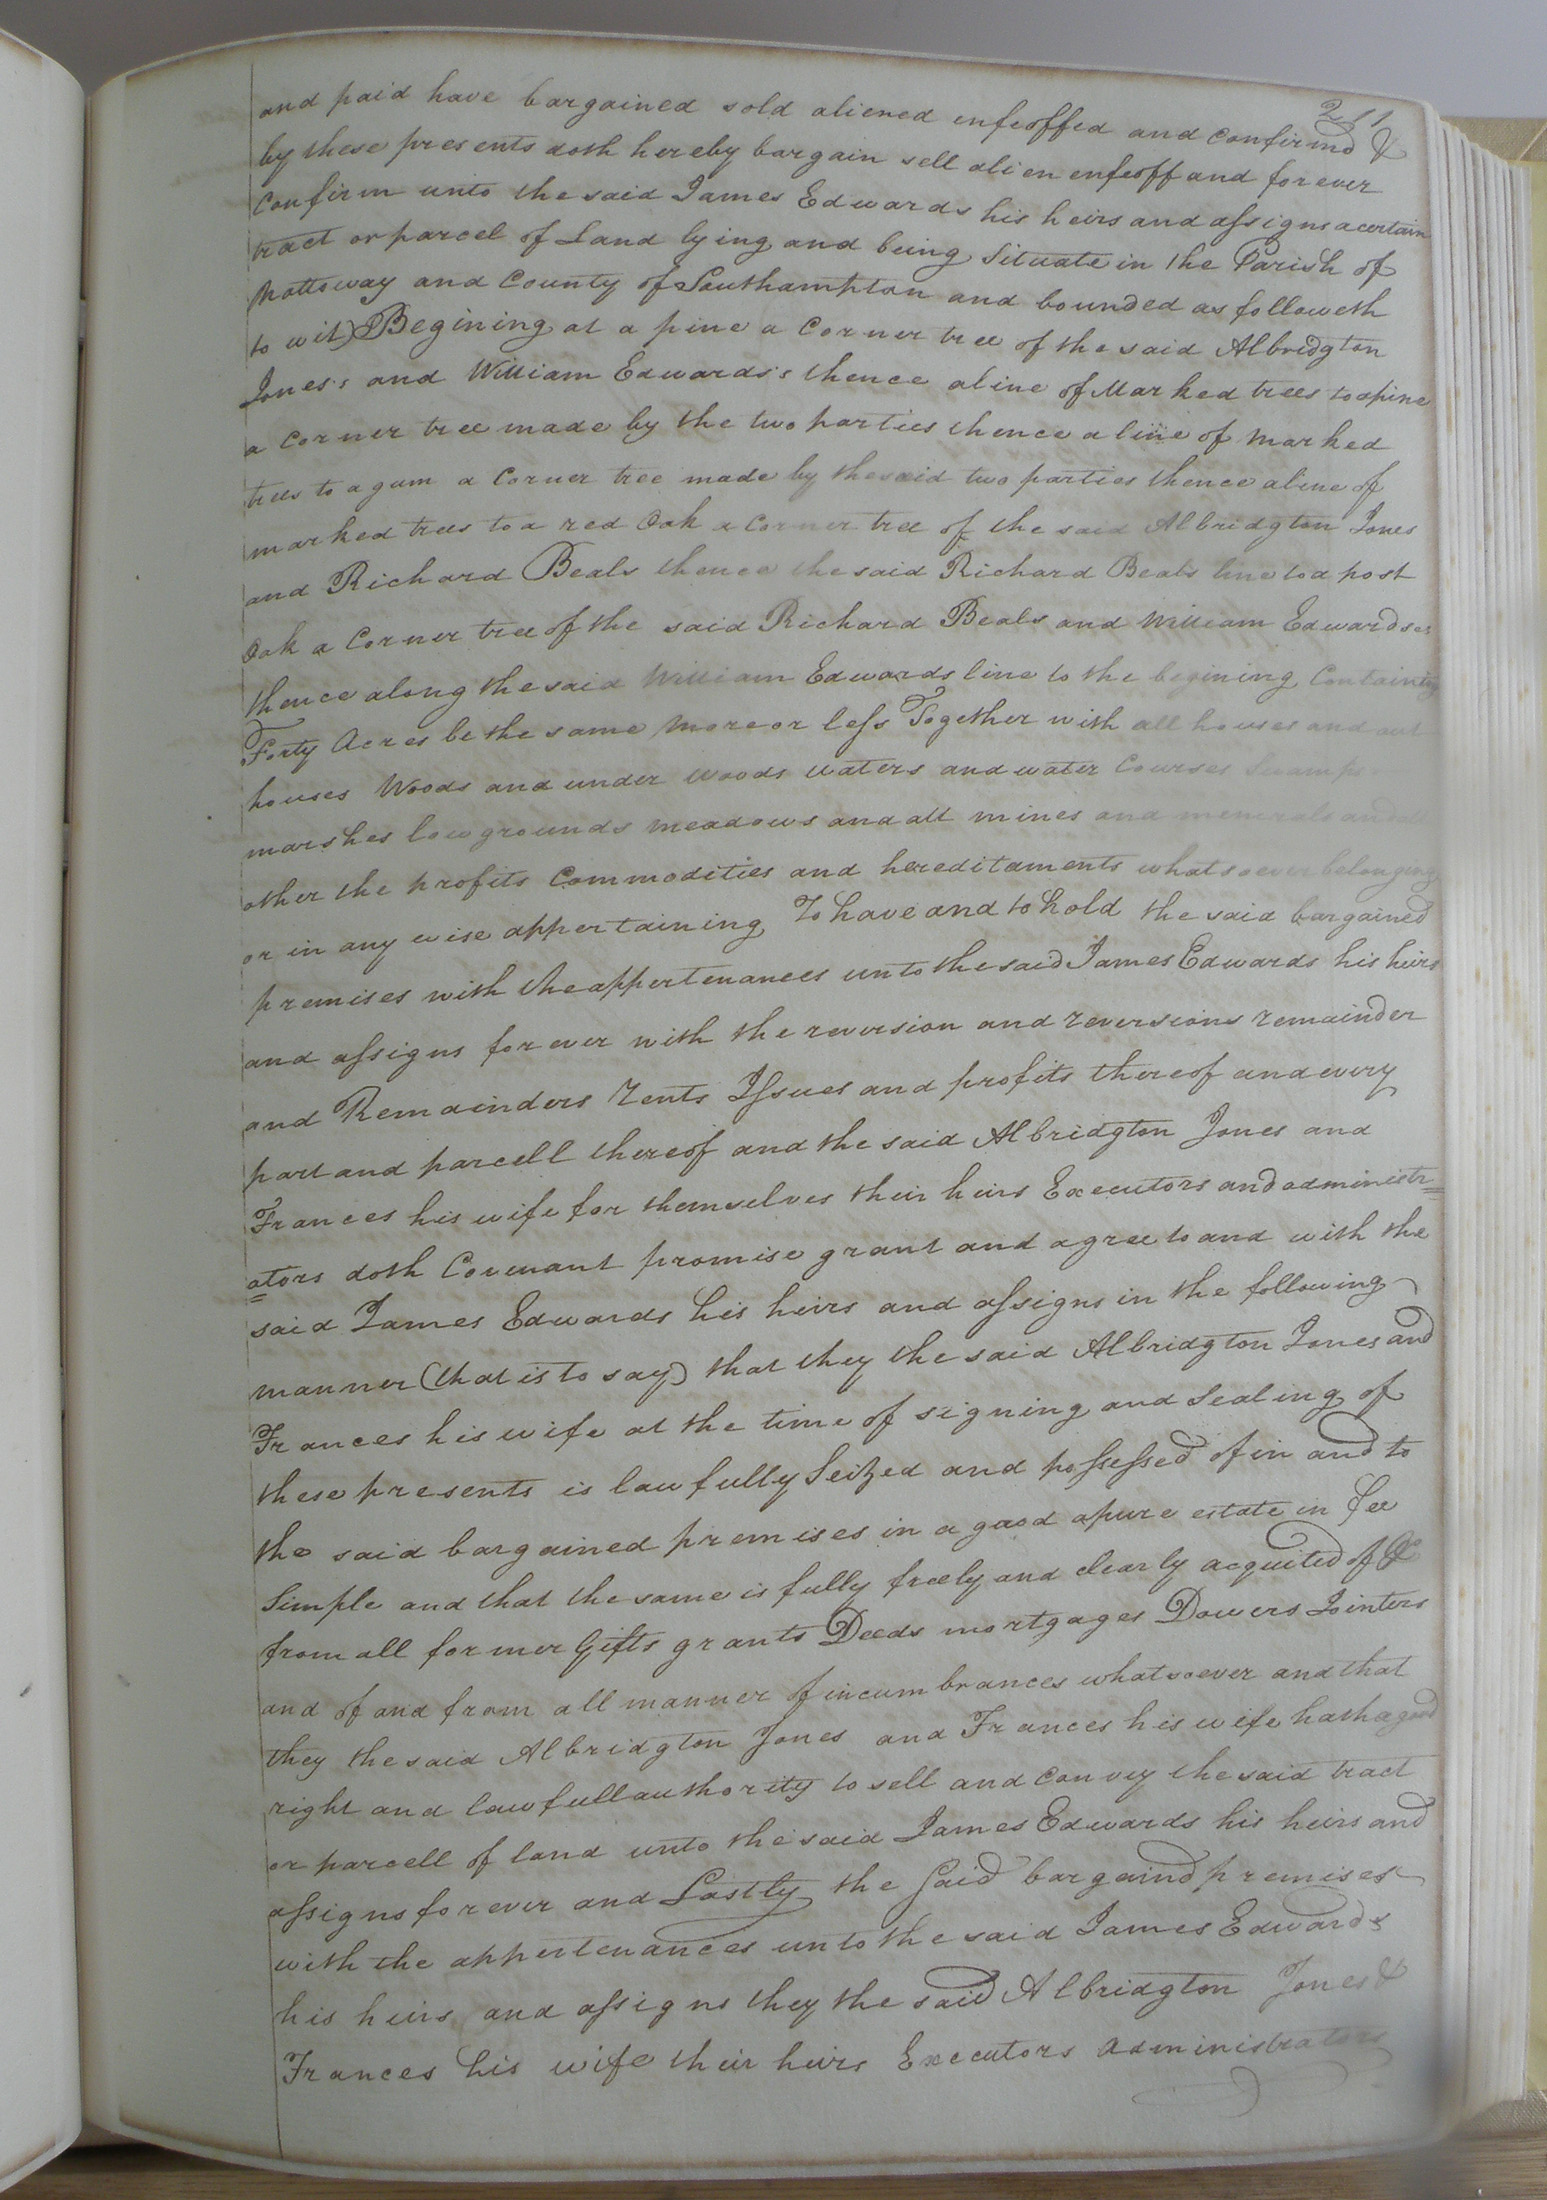 211
and paid have bargained sold aliened enfeoffed and confirmd &
by these presents doth hereby bargain sell alien enfeoff and forever
Confirm unto the said James Edwards his heirs and assigns a certain
tract or parcel of Land lying and being Situate in the Parish of
Nottoway and County of Southampton and bounded as followeth
to wit) Begining at a pine a Corner tree of the said Albridgton
Jones's and William Edwards's thence a line of Marked trees to a pine
a Corner tree made by the two parties thence a line of marked
trees to a gum a Corner tree made by the said two parties thence a line of
marked trees to a red Oak a Corner tree of the said Albridgton Jones
and Richard Beals thence the said Richard Beals line to a post
Oak a Corner tree of the said Richard Beals and William Edwardses
thence along the said William Edwards line to the begining Containing
Forty Acres be the same more or less Together with all houses and out
houses Woods and under woods waters and water Courses Swamps
marshes low grounds meadows and all mines and menerals and all
other the profits Commodities and hereditaments whatsoever belonging
or in any wise appertaining To have and to hold the said bargained
premises with the appertenances unto the said James Edwards his heirs
and assigns forever with the reversion and reversions remainder
and Remainders rents Issues and profits thereof and every
part and parcell thereof and the said Albridgton Jones and
Frances his wife for themselves their heirs Executors and administr=
=ators doth Covenant promise grant and agree to and with the
said James Edwards his heirs and assigns in the following
manner (that is to say) that they the said Albridgton Jones and
Frances his wife at the time of signing and Sealing of
these presents is lawfully Seized and possessed of in and to
the said bargained premises in a good apure estate in fee
Simple and that the same is fully freely and clearly acquited of &
from all former Gifts grants Deeds mortgages Dowers Jointers
and of and from all manner of incumbrances whatsoever and that
they the said Albridgton Jones and Frances his wife hath a good
right and lawfull authority to sell and convey the said tract
or parcell of land unto the said James Edwards his heirs and
assigns forever and Lastly the said bargaind premises
with the appertenances unto the said James Edwards
his heirs and assigns they the said Albridgton Jones &
Frances his wife their heirs Executors administrators